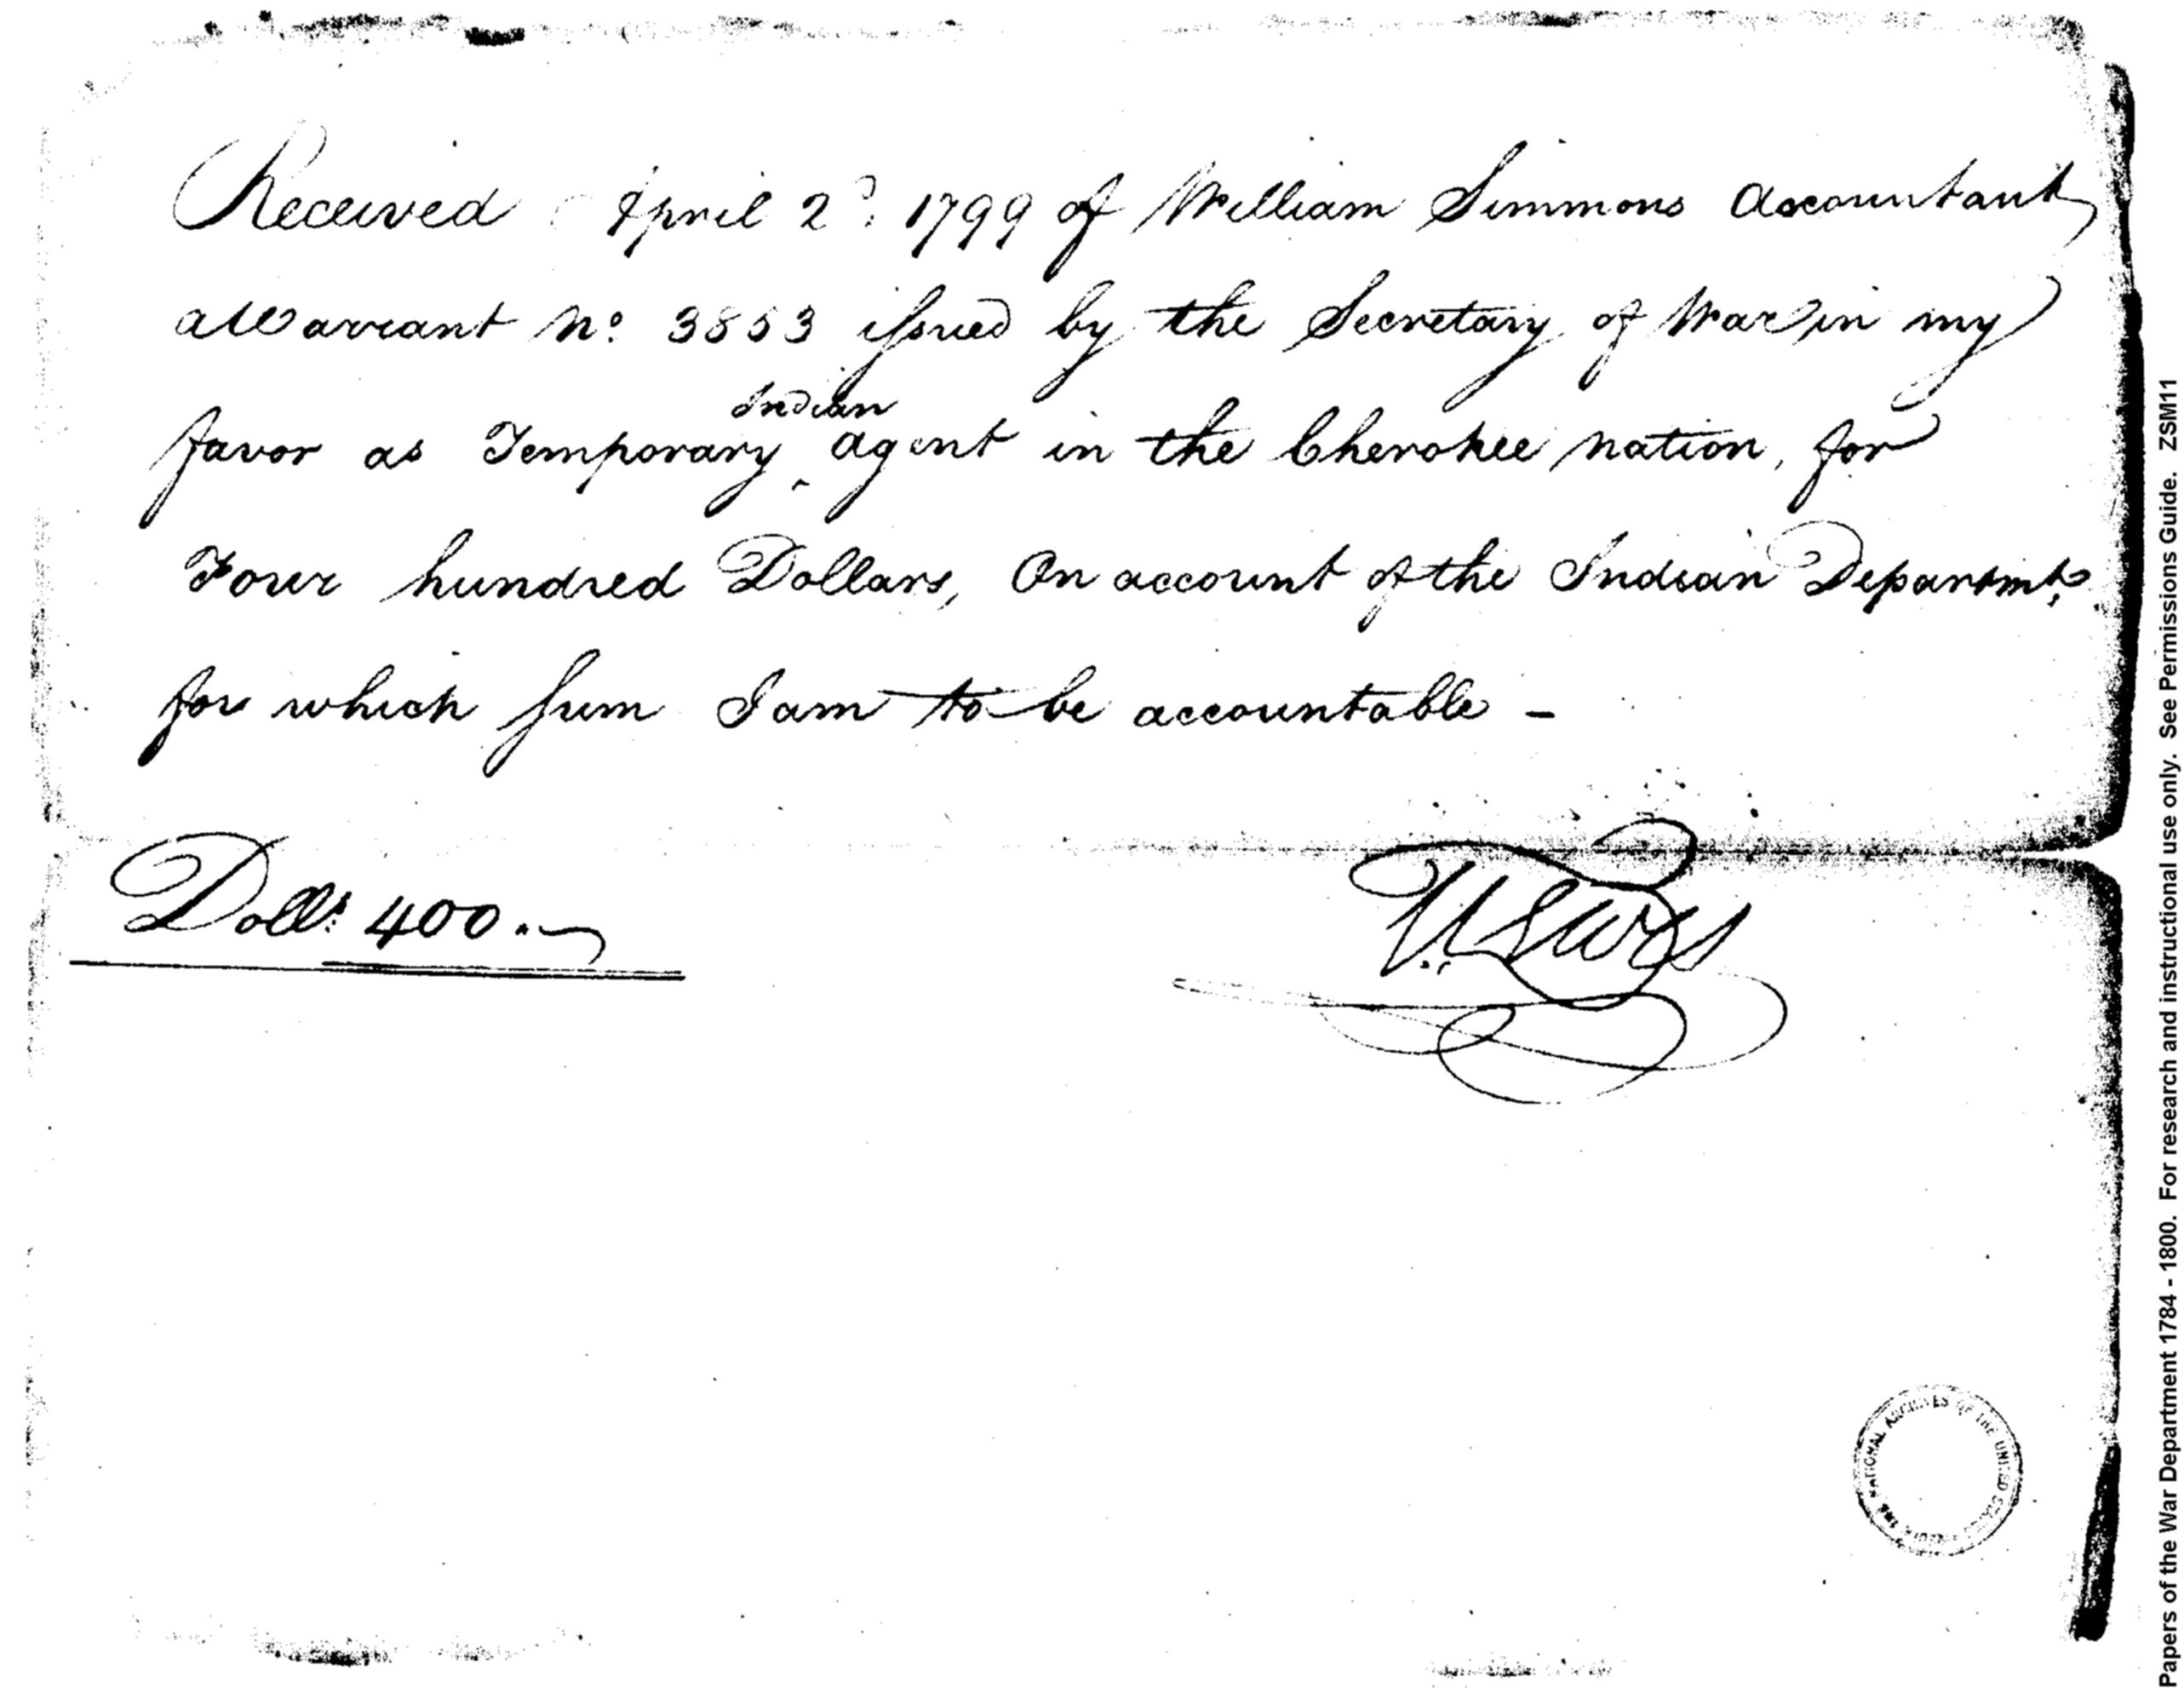 Received April 2d. 1799 of William Simmons Accountant
a Warrant No. 3853 issued by the Secretary of War in my
favor as Temporary Indian agent in the Cherokee nation, for
Four hundred Dollars, On account of the Indian Departmt.
for which sum I am to be accountable -
Dolls. 400.
Papers of the War Department 1784 - 1800. For research and instructional use only. See Permissions Guide. ZSM11
NATIONAL ARCHIVES OF THE UNITED STATES